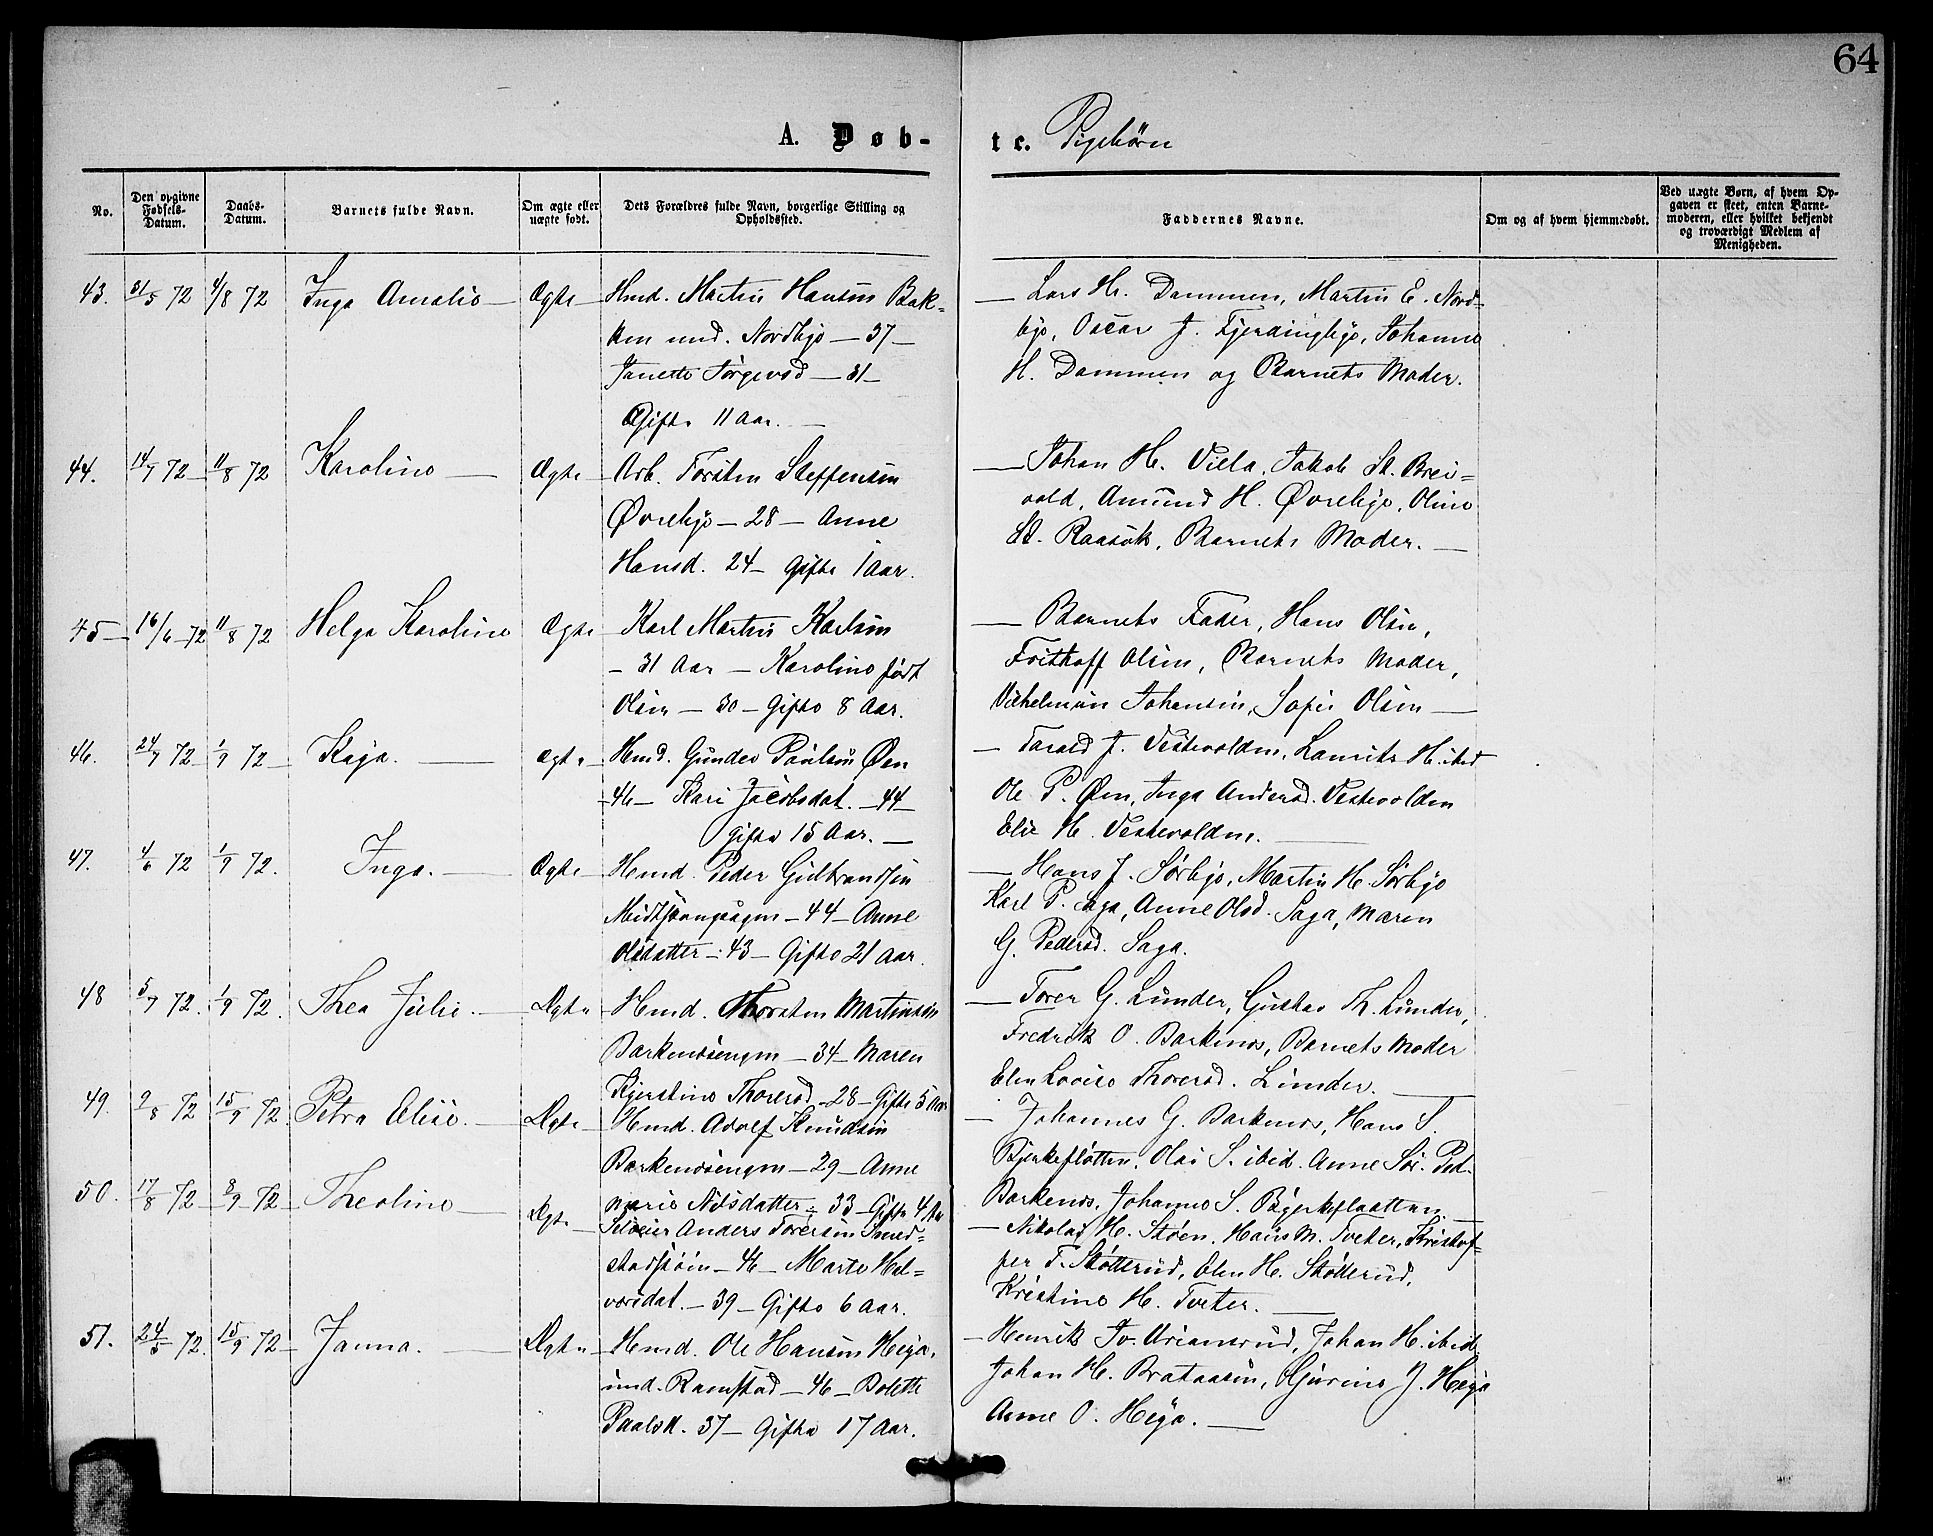 64
A. Døb-
te. Pigebörn
No.
Den opgivne Fødsels-Datum.
Daabs-Datum.
Barnets fulde Navn.
Om ægte eller uægte født.
Dets Forældres fulde Navn, borgerlige Stilling og Opholdssted.
Faddernes Navne.
Om og af hvem hjemmedøbt.
Ved uægte Børn, af hvem Opgaven er skeet, enten Barnemoderen, eller hvilket bekjendt og troværdigt Medlem af Menigheden.
43. 31/5 72 4/8 72 Inga Amalie — Ægte — Hmd. Martin Hansen Bak=
ken und. Nordbye — 37 —
Janette Törgersd — 31 —
Gifte 11 Aar. —
— Lars Hr. Dammen, Martin E. Nord=
bye, Oscar J. Fjerdingbye, Johanne
H. Dammen og Barnets Moder.
44. 14/7 72 — 11/8 72 Karoline — Ægte — Arb. Torsten Steffensen
Øvrebye — 28 — Anne
Hansd. 24 — Gifte 1 Aar.
— Johan H. Viela, Jakob St. Brei=
vold, Amund H. Øvrebye, Oline
St. Raasok, Barnets Moder. —
45 — 16/6 — 72 11/8 72 Helga Karoline Ægte — Karl Martin Karlsen
— 31 Aar — Karoline født
Olsen — 30 — Gifte 8 Aar.
— Barnets Fader, Hans Olsen,
Frithoff Olsen, Barnets Moder,
Vilhelmine Johansen, Sofie Olsen —
46. 24/7 72 — 1/9 72 — Kaja. — Ægte — Hmd. Gunder Paulsen Øen
— 46 — Kari Jacobsdat. — 44 —
Gifte 15 Aar. —
— Tarald J. Vestvolden, Laurits H. ibid
Ole P. Øen, Inga Andersd. Vestvolden
Elie H. Vestvolden. —
47. 4/6 72 1/9 72. Inga. — Ægte — Hmd. Peder Gulbrandsen
Midtskaugsagen — 44 — Anne
Olsdatter — 43 — Gifte 21 Aar.
— Hans J. Sørbye, Martin H. Sørbye
Karl P. Saga, Anne Olsd. Saga, Maren
G. Pedersd. Saga.
48 5/7 72. 1/9 72. Thea Julie. — Ægte — Hmd. Thorsten Martinsen
Barkenæsengen — 34 — Maren
Kjerstine Thoresd — 28 — Gifte 5 Aar
— Torer G. Lunder, Gustav Th. Lunder,
Fredrik O. Barkenæs, Barnets Moder
Elen Lovise Thoresd. Lunder. —
49. 2/8 72 15/9 72. Petra Elise. — Ægte — Hmd. Adolf Knudsen
Barkenæsengen — 29 — Anne
Marie Nilsdatter — 33 — Gifte 4 Aar
— Johannes G. Barkenæs, Hans S.
Bjerkefløtten, Olai S. ibid. Anne Sør. Ped.
Barkenæs, Johanne S. Bjerkeflaatten. —
50. 17/8 72 — 8/9 — 72 — Theoline — Ægte — Selveier Anders Torersen Smed=
stadstøen — 46 — Marte Hal=
vorsdat. — 39 — Gifte 6 Aar.
— Nikolai H. Støen, Hans M. Tveter, Kristof=
fer T. Støtterud, Elen H. Støtterud,
Kristine H. Tveter. —
51. 24/5 72. 15/9 72 — Janna. — Ægte — Hmd. Ole Hansen Heja,
und. Ramstad — 46 — Bolette
Paalsd. 37 — Gifte 17 Aar.
— Henrik Jo. Urianrud, Johan H. ibid,
Johan H. Brataasen, Gurine J. Heja
Anne O. Heja. —